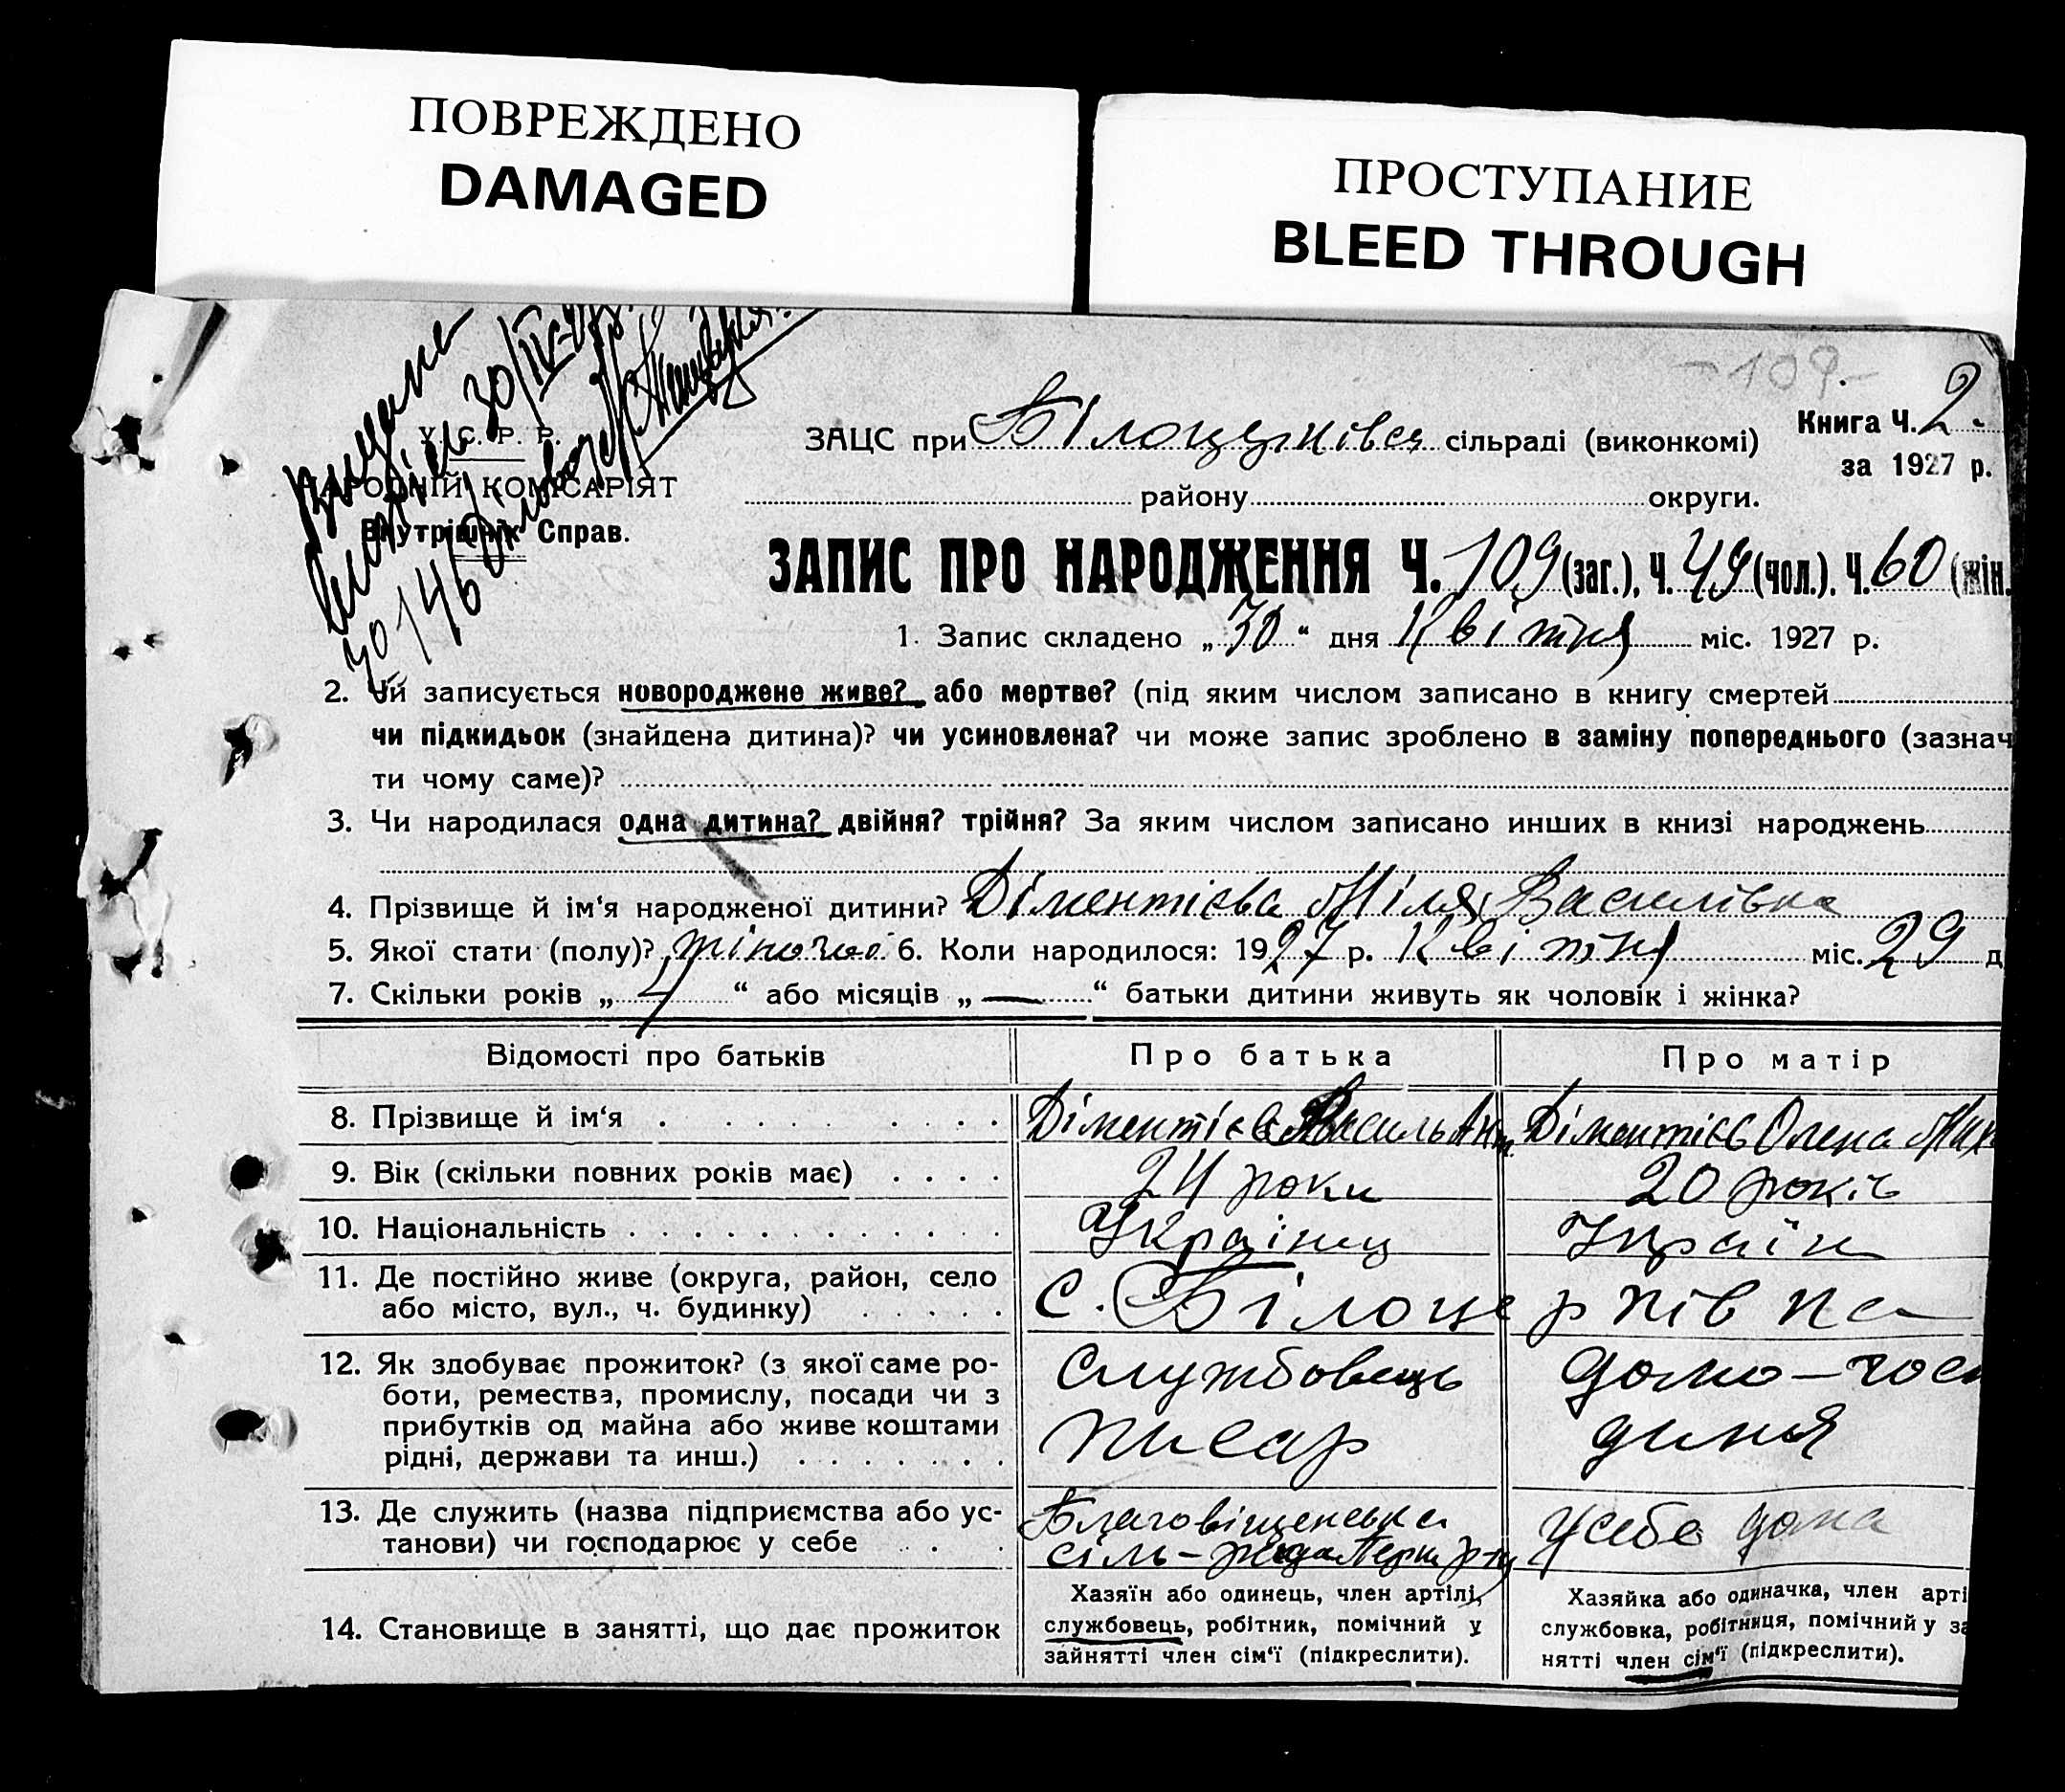 ПОВРЕЖДЕНО
DAMAGED
ПРОСТУПАНИЕ
BLEED THROUGH
-109.-
Книга Ч. 2-
за 1927 р.
Видане
30/IV-
30/146
У. С. Р. Р.
НАРОДНІЙ КОМІСАРІЯТ
Внутрішніх Справ.
ЗАЦС при Білоцерківся сільраді (виконкомі)
району округи.
ЗАПИС ПРО НАРОДЖЕННЯ Ч. 109 (заг.), Ч. 49 (чол.). Ч. 60 (жін.
1. Запис складено „ 30 “ дня Квітня міс. 1927 р.
2. Чи записується новороджене живе? або мертве? (під яким числом записано в книгу смертей
чи підкидьок (знайдена дитина)? чи усиновлена? чи може запис зроблено в заміну попереднього (зазнач
ти чому саме)?
3. Чи народилася одна дитина? двійня? трійня? За яким числом записано инших в книзі народжень
4. Прізвище й ім‘я народженої дитини? Діментієва Міля Василівна
5. Якої стати (полу)? жіночої 6. Коли народилося: 1927 р. Квітня міс. 29 д
7. Скільки років „ 4 “ або місяців „ — “ батьки дитини живуть як чоловік і жінка?
Відомості про батьків Про батька Про матір
8. Прізвище й ім‘я Діментієв Василь Ант. Діментієв Олена Мик
9. Вік (скільки повних років має) 24 роки 20 років
10. Національність Українец Україн
11. Де постійно живе (округа, район, село
або місто, вул., ч. будинку) с. Білоцерківка
12. Як здобуває прожиток? (з якої саме ро-
боти, ремества, промислу, посади чи з
прибутків од майна або живе коштами
рідні, держави та инш.)
Службовець
писар
домо-гос
диня
13. Де служить (назва підприємства або ус-
танови) чи господарює у себе
Благовіщенська
сіль-рада
у себе дома
14. Становище в занятті, що дає прожиток
Хазяїн або одинець, член артілі,
службовець, робітник, помічний у
зайнятті член сім‘ї (підкреслити).
Хазяйка або одиначка, член арті
службовка, робітниця, помічний у за
нятті член сім‘ї (підкреслити).